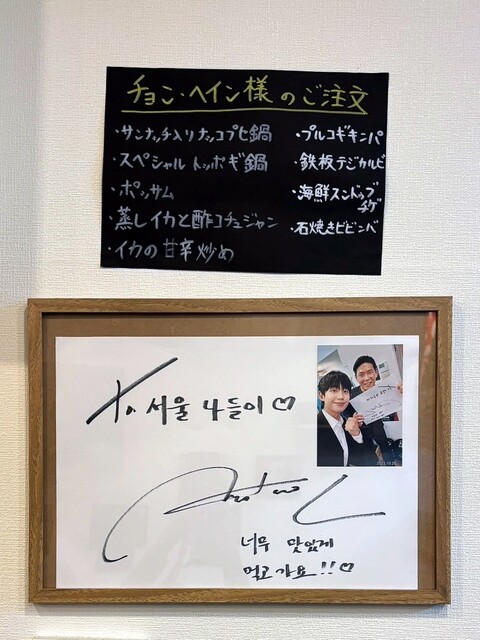 チョン・ヘイン様のご注文
・サンナッチ入りナッコプヒ鍋
・スペシャルトッポギ鍋
・ポッサム
・蒸しイカと酢コチュジャン
・イカの甘辛炒め
・プルコギキンパ
・鉄板テジカルビ
・海鮮スンドゥブ
チゲ
・石焼きビビンバ
To 서울 나들이♡
너무 맛있게
먹고 가요!!♡